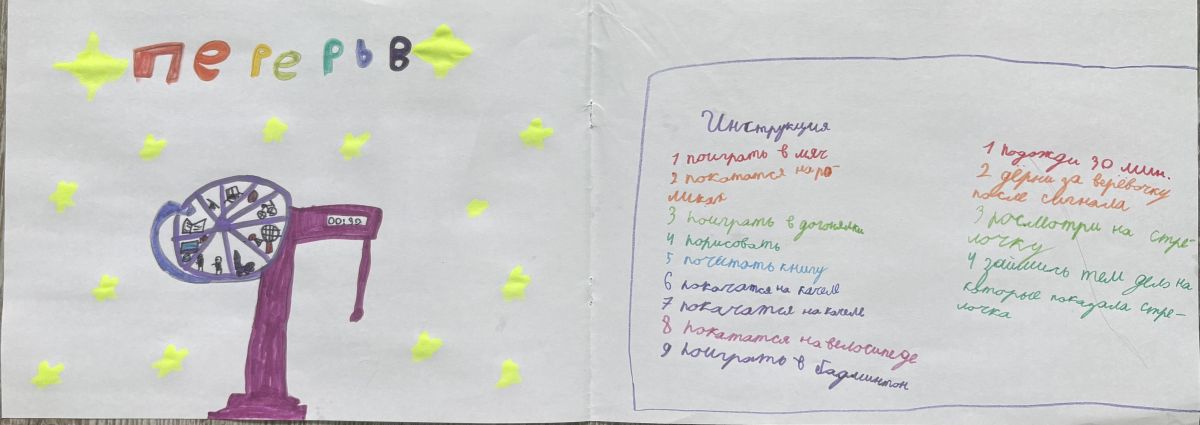 Перерыв
00:30
Инструкция
1 поиграть в мяч
2 покататся на ро-
ликах
3 поиграть в догонялки
4 порисовать
5 почитать книгу
6 покачатся на качеле
7 покачатся на качеле
8 покататся на велосипеде
9 поиграть в бадминтон
1 подожди 30 мин.
2 дёрни за верёвочку
после сигнала
3 посмотри на стре-
лочку
4 займись тем дело на
которые показала стре-
лочка